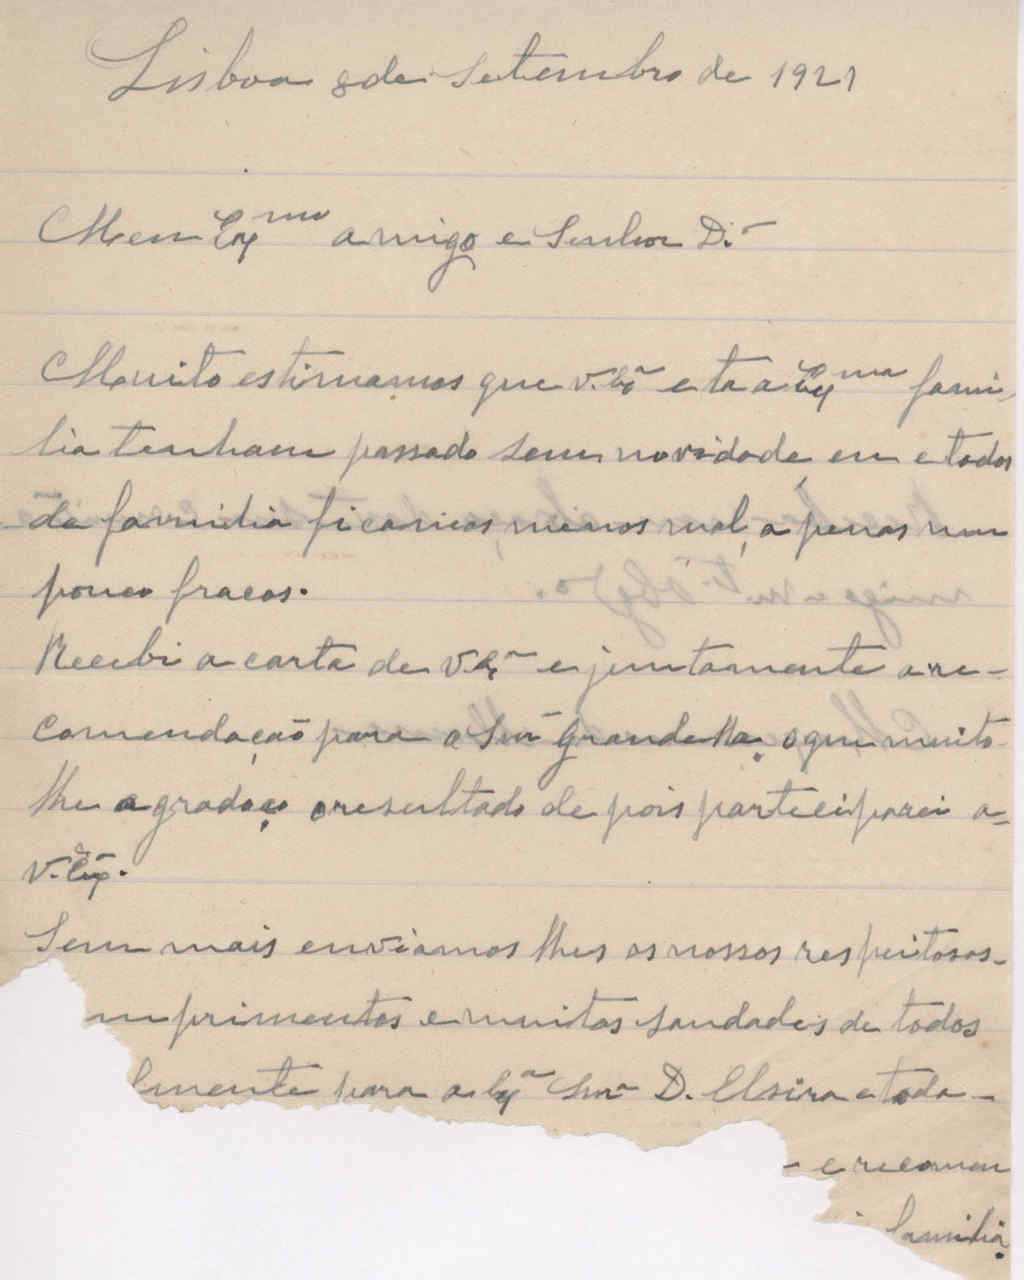 Lisboa 8 de Setembro de 1921
Meu Exmo amigo e Senhor Dr.
Muito estimamos que v. Exª e toda a Exma fami-
lia tenham passado sem novidade, eu e todos
da familia ficamos menos mal, apenas um
pouco fracos.
Recebi a carta de V. Exª e juntamente a re-
comendação para a Snrª Grandella, o que muito
lhe agradeço o resultado depois participarei a
V. Exª.
Sem mais enviamos lhes os nossos respeitosos
mprimentos e muitas saudades de todos
lmente para a Exª Snrª D. Elzira e toda
e recomen
familia.